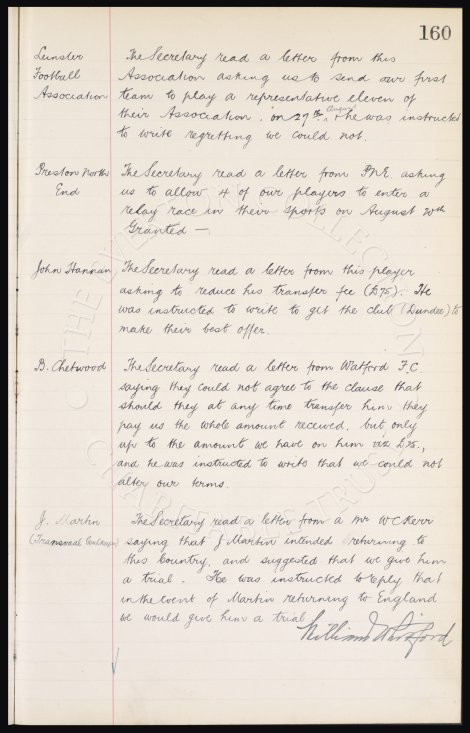 160
Leinster
Football
Association
The Secretary read a letter from this
Association asking us to send our first
team to play a representative eleven of
their Association. on 27th August & he was instructed
to write regretting we could not.
Preston North
End
The Secretary read a letter from P.N.E. asking
us to allow 4 of our players to enter a
relay race in their sports on August 20th
Granted —
John Hannan
The Secretary read a letter from this player
asking to reduce his transfer fee (£75). He
was instructed to write to get the club (Dundee) to
make their best offer.
B. Chetwood
The Secretary read a letter from Watford F.C.
saying they could not agree to the clause that
should they at any time transfer him they
pay us the whole amount received, but only
up to the amount we have on him viz £75.,
and he was instructed to write that we could not
alter our terms.
J. Martin
(Transvaal Goalkeeper)
The Secretary read a letter from a Mr W C Kerr
saying that J Martin intended returning to
this Country, and suggested that we give him
a trial. He was instructed to reply that
in the event of Martin returning to England
we would give him a trial
THE EVERTON COLLECTION
CHARITABLE TRUST